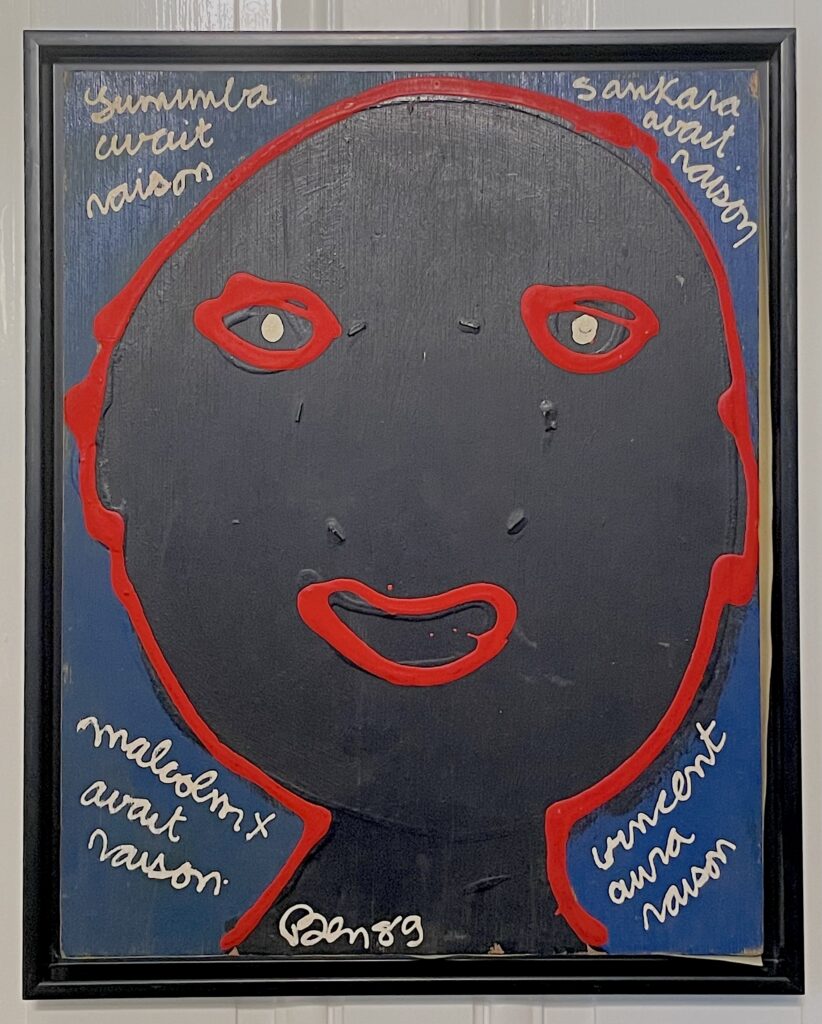 Lumumba
avait
raison
Sankara
avait
raison
malcolm x
avait
raison.
vincent
aura
raison
Ben 89